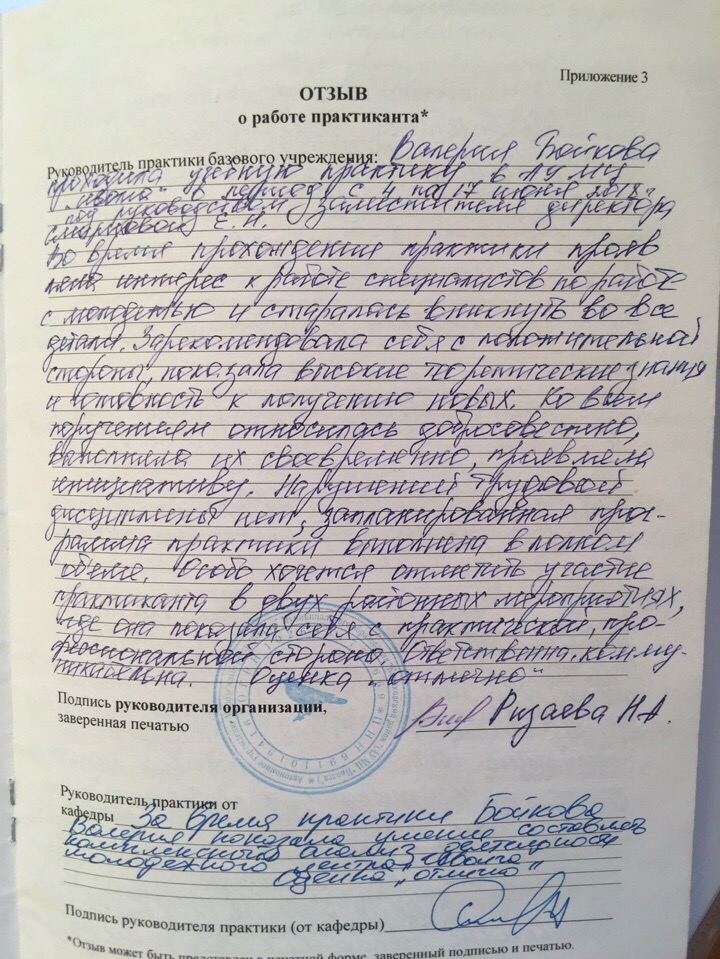 Приложение 3
ОТЗЫВ
о работе практиканта*
Руководитель практики базового учреждения: Валерия Бойкова
проходила учебную практику в АУ МЦ
"Иволга" в период с 4 по 17 июня 2018 г.
под руководством заместителя директора
Е.Н.
Во время прохождения практики прояв
ляла интерес к работе специалистов по работе
с молодежью и старалась вникнуть во все
детали. Зарекомендовала себя с положительной
стороны, показала высокие теоретические знания
и готовность к получению новых. Ко всем
поручениям относилась добросовестно,
выполняла их своевременно, проявляла
инициативу. Нарушений трудовой
дисциплины нет, запланированная прог-
рамма практики выполнена в полном
объеме. Особо хочется отметить участие
практиканта в двух районных мероприятиях,
где она показала себя с практической, про-
фессиональной стороны. Ответственна, комму-
никабельна. Оценка "отлично"
Подпись руководителя организации,
заверенная печатью
Ризаева Н.А.
Руководитель практики от
кафедры За время практики Бойкова
Валерия показала умение составлять
комплексный анализ деятельности
молодежного центра "Иволга"
Оценка "отлично"
Подпись руководителя практики (от кафедры)
*Отзыв может быть представлен в печатной форме, заверенный подписью и печатью.